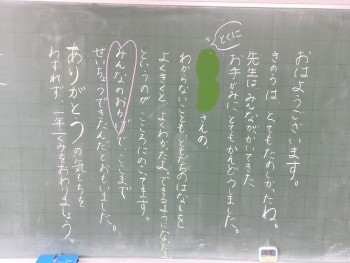 おはようございます。
きのうは、とてもたのしかったね。
先生はみんながかいてきた
お手がみに、とてもかんどうしました。
とくに
さんの
わからないことも、ともだちのはなしを
よくきくと、よくわかったよ、できるようになったよ
というのが、こころにのこってます。
みんなのおかげで、ここまで
せいちょうできたんだとおもいました。
ありがとうの気もちを
わすれず、一年くみをおわりましょう。